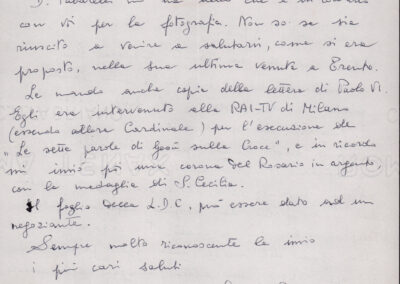 con voi per la fotografia. Non so se sia
riuscito a venire a salutarvi, come si era
proposto, nella sua ultima venuta a Trento.
Le mando anche copia della lettera di Paolo VI.
Egli era intervenuto alla RAI-TV di Milano
(essendo allora Cardinale) per l'esecuzione de
"Le sette parole di Gesù sulla Croce", e in ricordo
mi inviò poi una corona del Rosario in argento
con la medaglia di S. Cecilia.
Il foglio Decca L.D.C. può essere dato ad un
negoziante.
Sempre molto riconoscente La invio
i più cari saluti